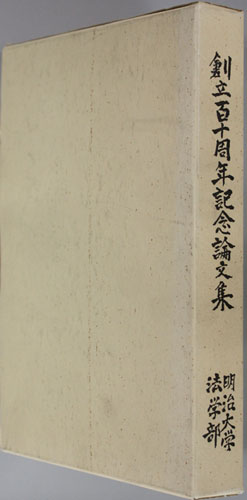 創立百十周年記念論文集
明治大学
法学部